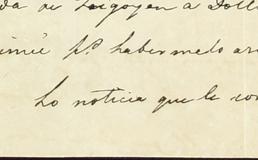 da de Irigoyen a Doll
imié pª habermelo ar
Lo noticia que le con